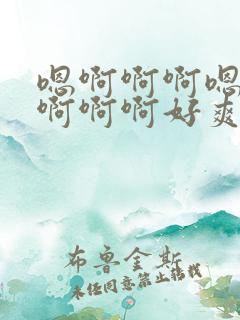 嗯啊啊啊嗯
啊啊啊好爽
布鲁金斯
未经同意禁止转载